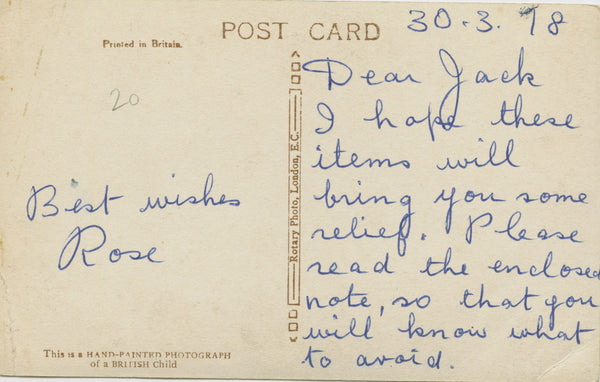 POST CARD
30.3.18
Printed in Britain.
20
Dear Jack
I hope these
items will
bring you some
relief. Please
read the enclosed
note, so that you
will know what
to avoid.
Best wishes
Rose
Rotary Photo, London, E.C.
This is a HAND-PAINTED PHOTOGRAPH
of a BRITISH Child